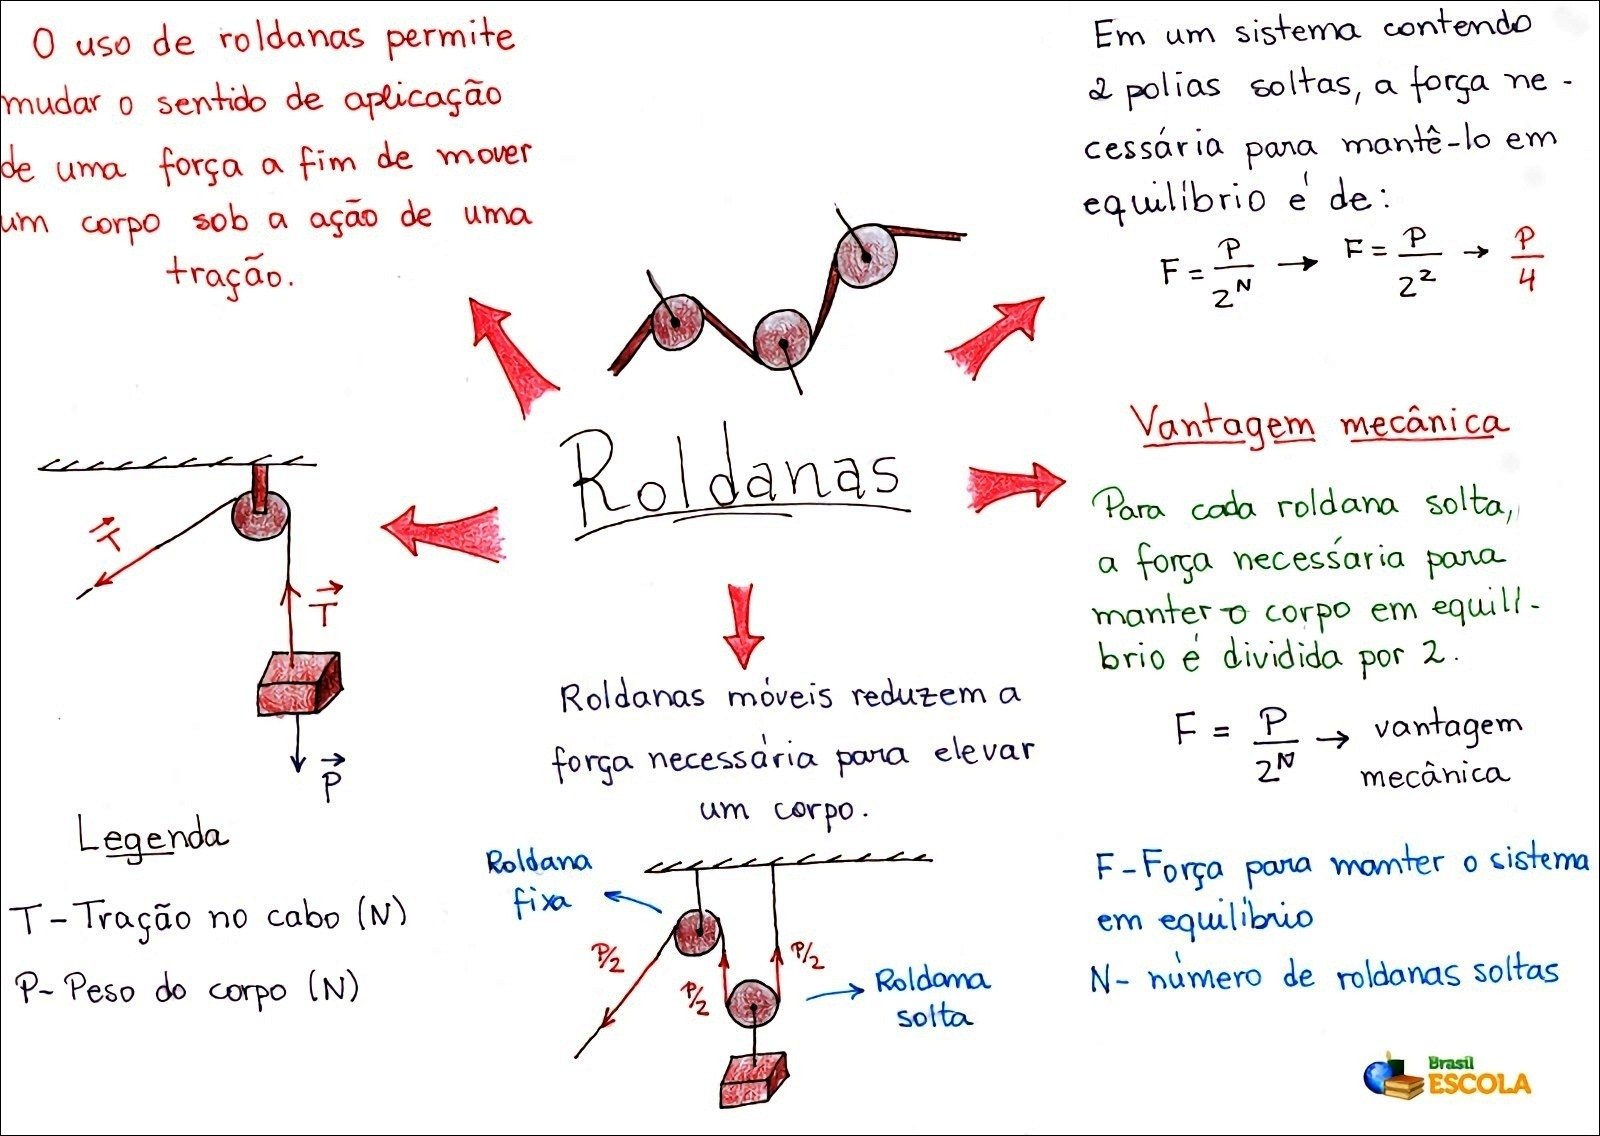 O uso de roldanas permite
mudar o sentido de aplicação
de uma força a fim de mover
um corpo sob a ação de uma
tração.
Em um sistema contendo
2 polias soltas, a força ne-
cessária para mantê-lo em
equilíbrio é de:
F = P/2^N → F = P/2^2 → P/4
Roldanas
Vantagem mecânica
Para cada roldana solta,
a força necessária para
manter o corpo em equilí-
brio é dividida por 2.
F = P/2^N → vantagem
mecânica
F - Força para manter o sistema
em equilíbrio
N - número de roldanas soltas
T
T
P
Legenda
T - Tração no cabo (N)
P - Peso do corpo (N)
Roldanas móveis reduzem a
força necessária para elevar
um corpo.
Roldana
fixa
P/2
P/2
P/2
Roldana
solta
Brasil
ESCOLA